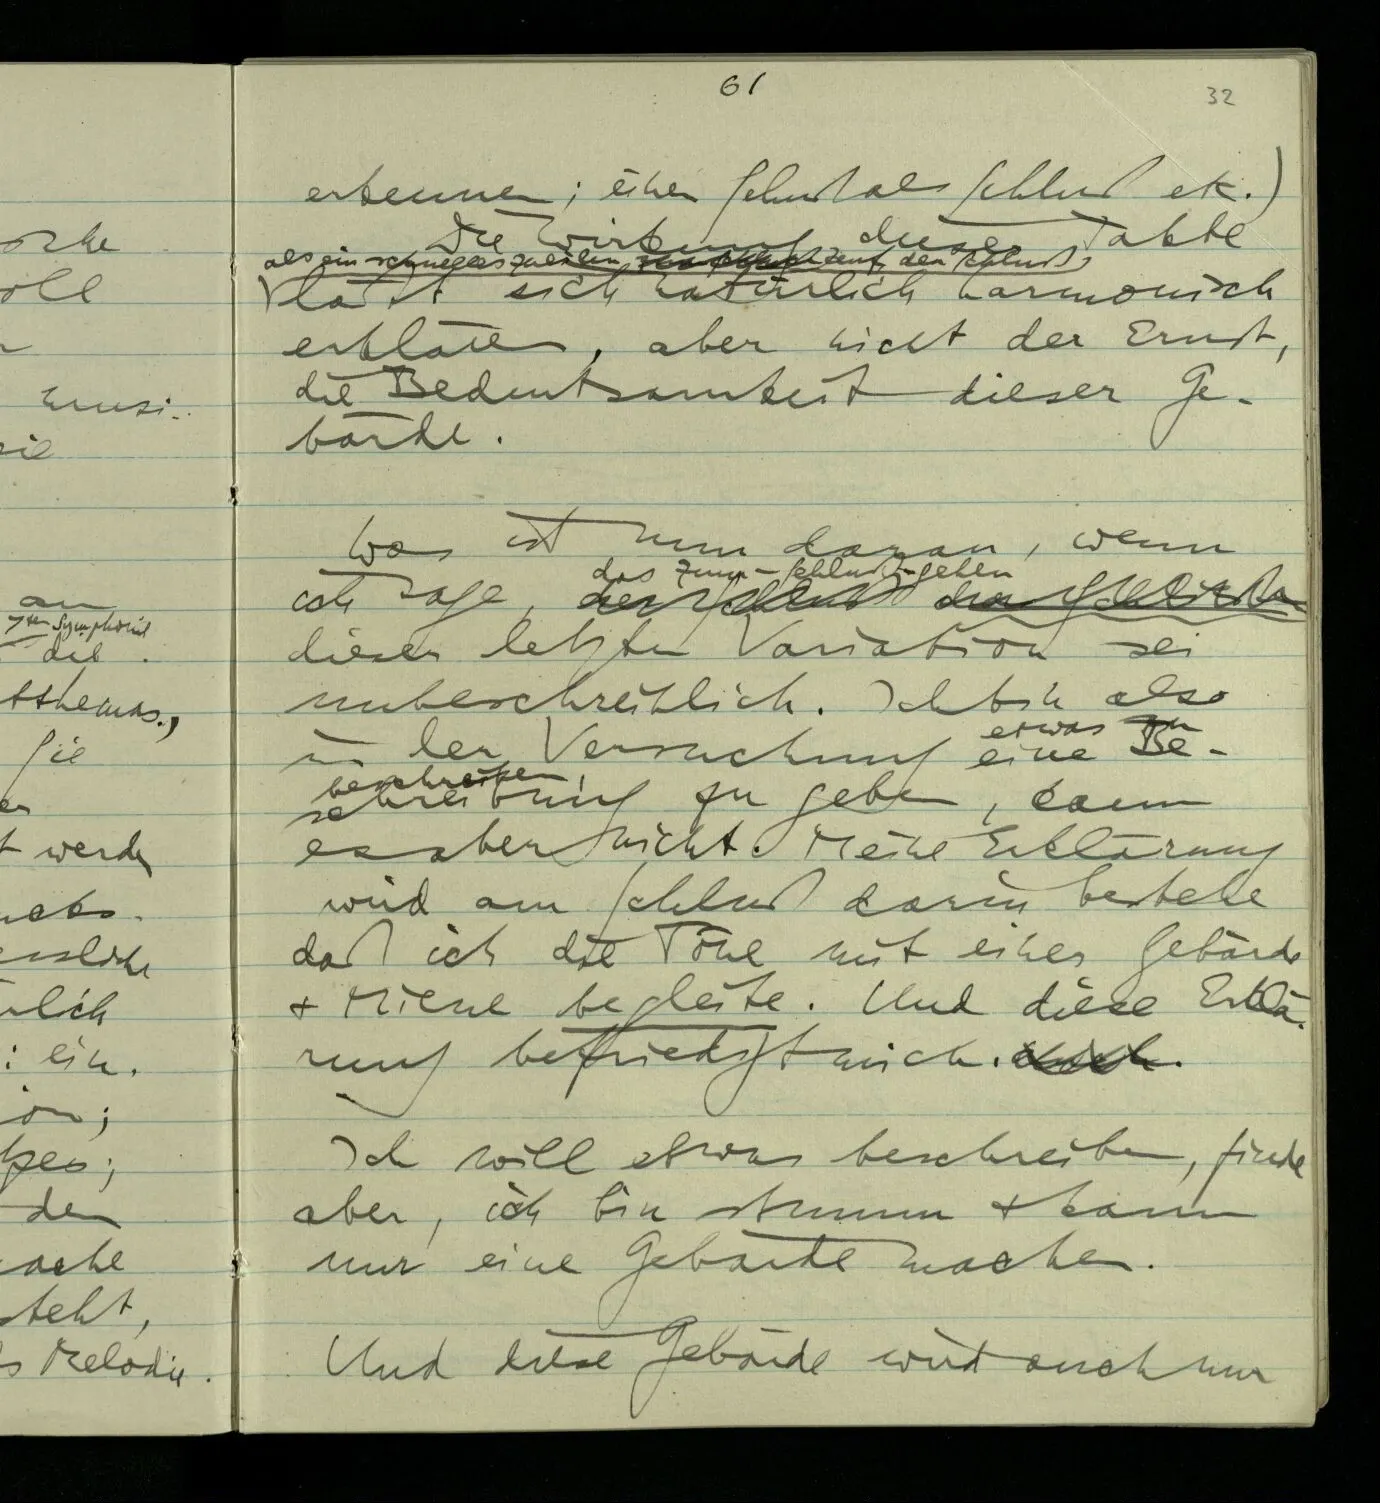 61
32
erkennen; einen Schluß als Schluß etc.)
Die Wirkung dieser Takte
als ein schnelles zueilen auf den Schluß,
läßt sich natürlich harmonisch
erklären, aber nicht der Ernst,
die Bedeutsamkeit dieser Ge-
bärde.
Was ist nun daran, wenn
das Zum-Schluß-gehen
ich sage, der Schluß
dieser letzten Variation sei
unbeschreiblich. Ich bin also
etwas zu
in der Versuchung eine Be-
beschreiben,
schreibung zu geben, kann
es aber nicht. Meine Erklärung
wird am Schluß darin bestehe
daß ich die Töne mit einer Gebärde
+ Miene begleite. Und diese Erklä-
rung befriedigt mich.
Ich will etwas beschreiben, finde
aber, ich bin stumm + kann
nur eine Gebärde machen.
Und diese Gebärde wird auch nur
oll
musi-
an
7ten Symphonie
die
Sie
werden
lich
: ein.
den
steht,
Melodie.